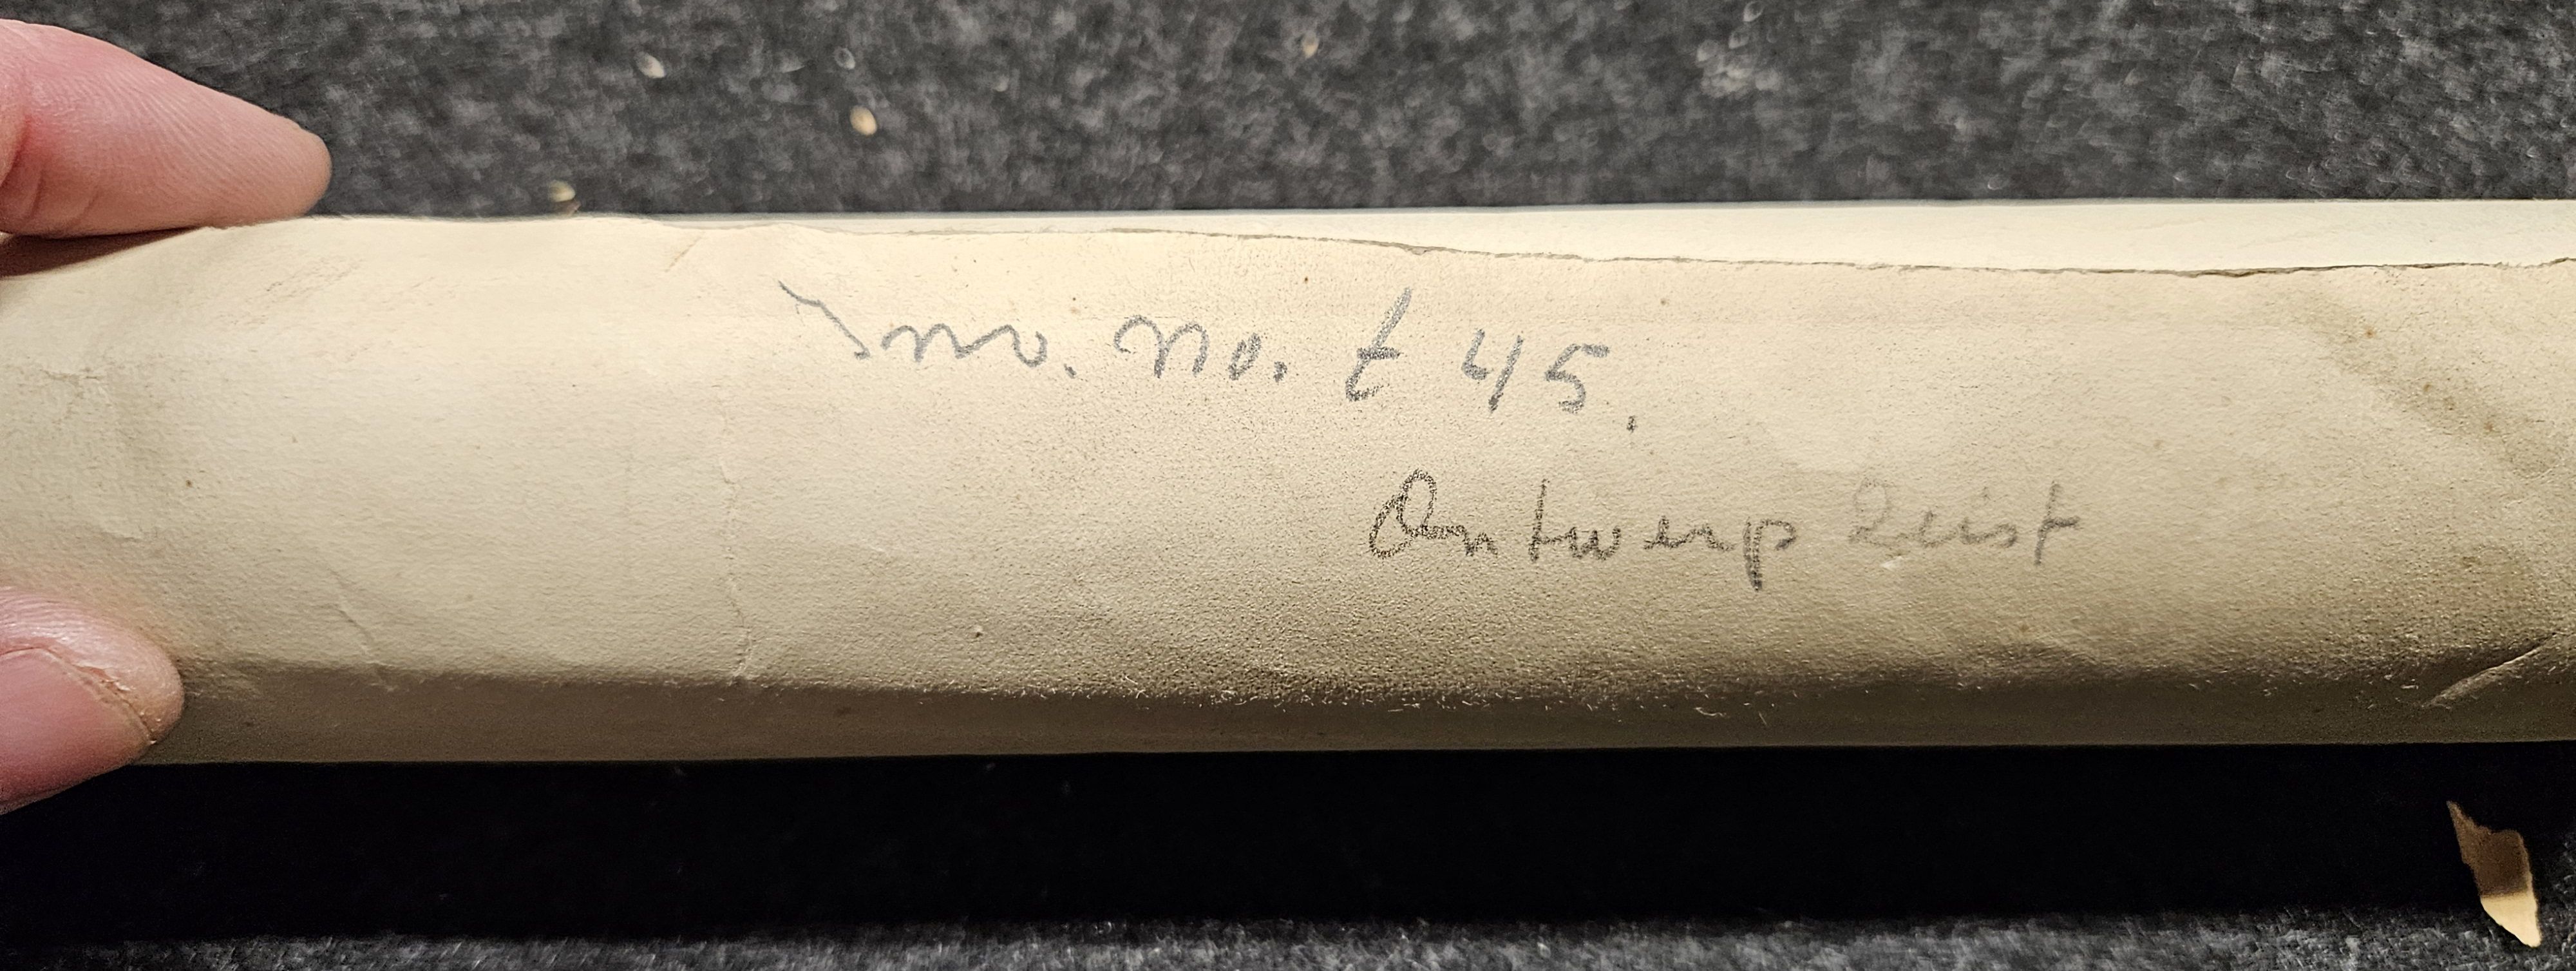 Inv. no. t 45.
Ontwerp Zeist